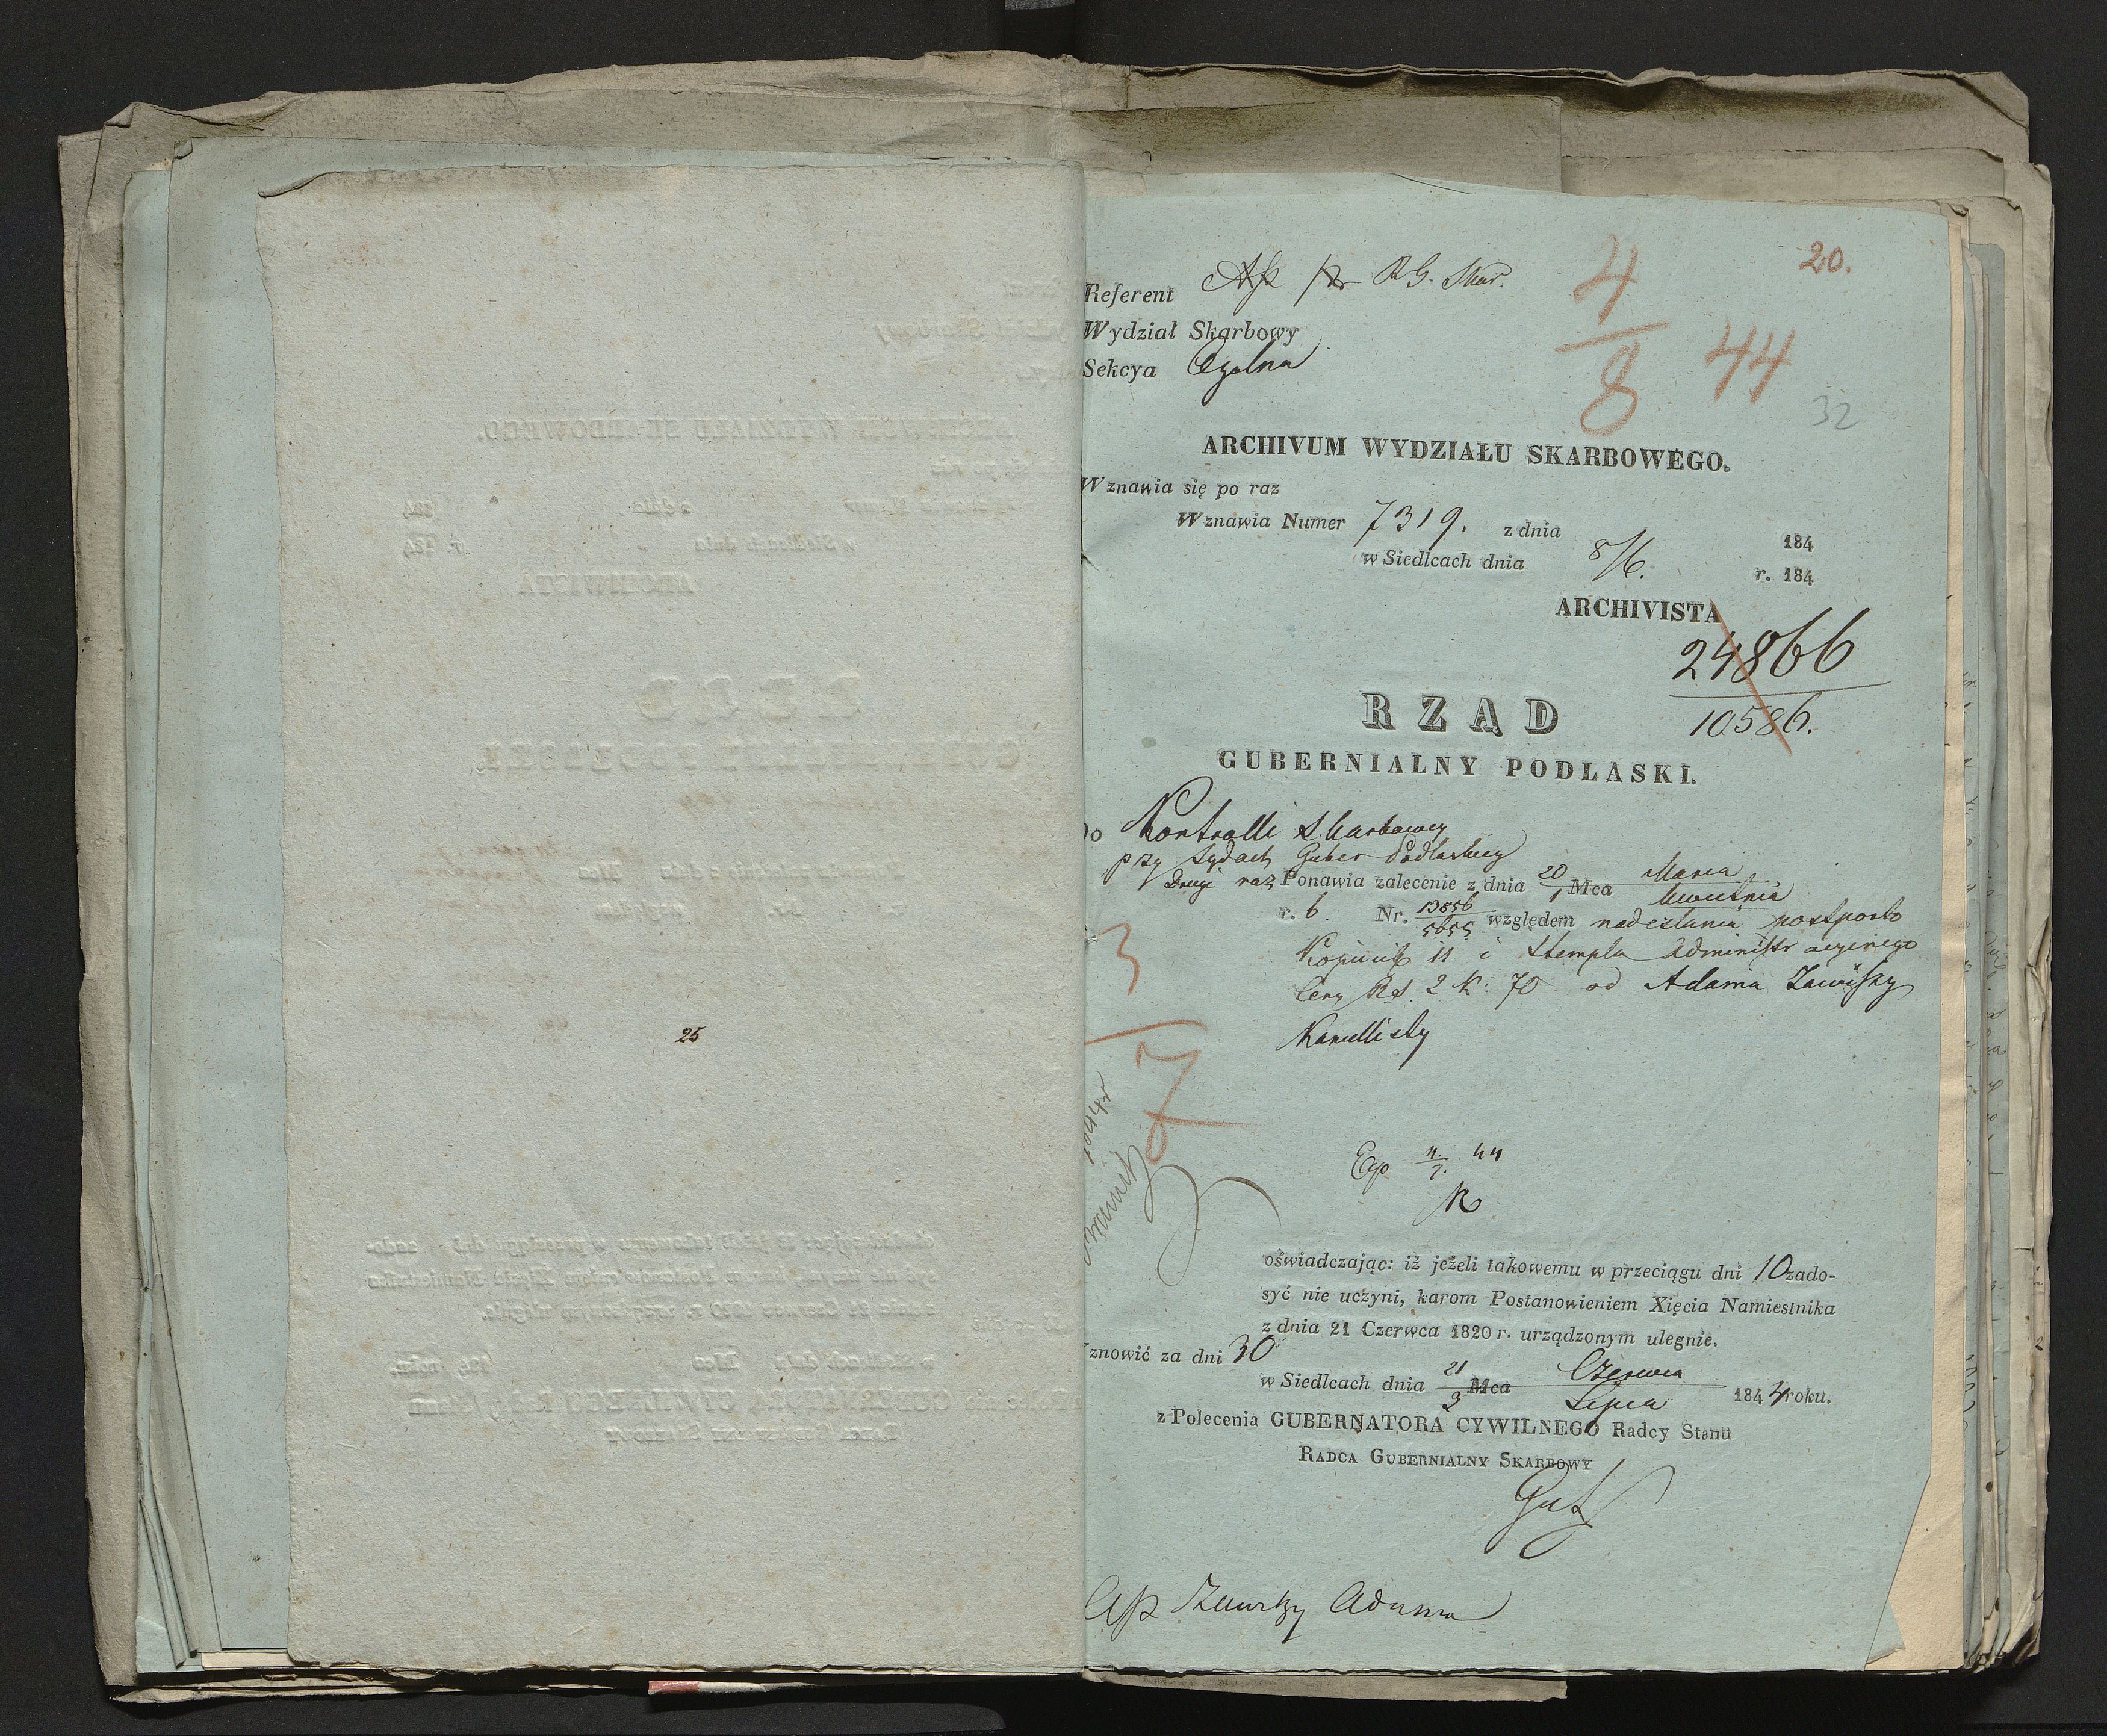 25
20.
4/8 44
32
Referent Ap pr RG. Skar.
Wydział Skarbowy
Sekcya Ogólna
ARCHIVUM WYDZIAŁU SKARBOWEGO.
Wznawia się po raz
Wznawia Numer 7319. z dnia 184
w Siedlcach dnia 8/6. r. 184
ARCHIVISTA
24866
10586.
RZĄD
GUBERNIALNY PODLASKI.
Do Kontrolli Skarbowey
przy Sądach Guber Podlaskiey
Drugi raz Ponawia zalecenie z dnia 20/1 Mca Marca / Kwietnia
r. b. Nr. 13856/5655 względem nadesłania postporto
Kopiiek 11 i Stempla Administracyinego
Ceny Rs. 2 K: 70 od Adama Zawiszy
Kancellisty
3/7
1844r
Exp 4/7. 44
oświadczając: iż jeżeli takowemu w przeciągu dni 10 zado-
syć nie uczyni, karom Postanowieniem Xięcia Namiestnika
z dnia 21 Czerwca 1820 r. urządzonym ulegnie.
Wznowić za dni 30
w Siedlcach dnia 21/3 Mca Czerwca / Lipca 1844 roku.
z Polecenia GUBERNATORA CYWILNEGO Radcy Stanu
RADCA GUBERNIALNY SKARBOWY
Ap Zawiszy Adama